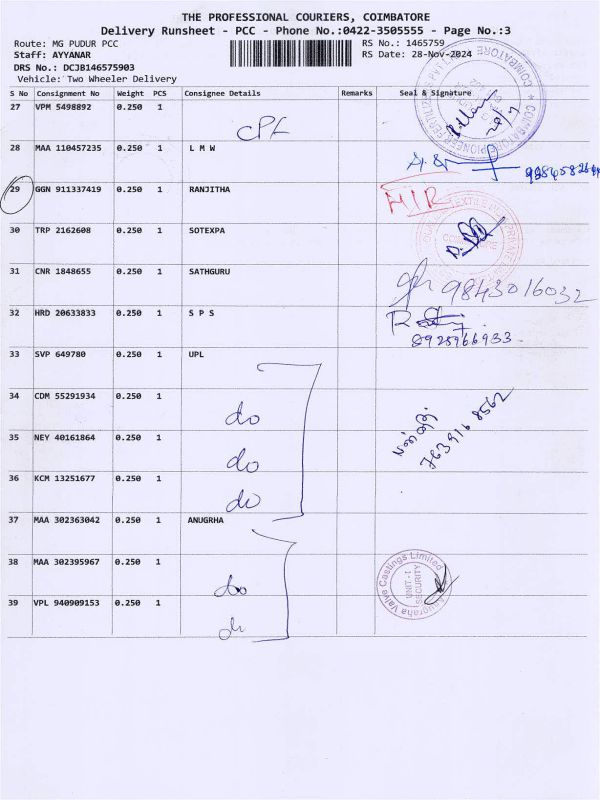 THE PROFESSIONAL COURIERS, COIMBATORE
Delivery Runsheet - PCC - Phone No.:0422-3505555 - Page No.:3
Route: MG PUDUR PCC RS No.: 1465759
Staff: AYYANAR RS Date: 28-Nov-2024
DRS No.: DCJB146575903
Vehicle: Two Wheeler Delivery
S No Consignment No Weight PCS Consignee Details Remarks Seal & Signature
27 VPM 5498892 0.250 1 CPF
28 MAA 110457235 0.250 1 L M W
29 GGN 911337419 0.250 1 RANJITHA
30 TRP 2162608 0.250 1 SOTEXPA
31 CNR 1848655 0.250 1 SATHGURU 9843016032
32 HRD 20633833 0.250 1 S P S
8925966933
33 SVP 649780 0.250 1 UPL
34 CDM 55291934 0.250 1 do
7639168562
35 NEY 40161864 0.250 1 do
36 KCM 13251677 0.250 1 do
37 MAA 302363042 0.250 1 ANUGRHA
38 MAA 302395967 0.250 1 do
Anugraha Valve Castings Limited
UNIT-1
SECURITY
39 VPL 940909153 0.250 1 do